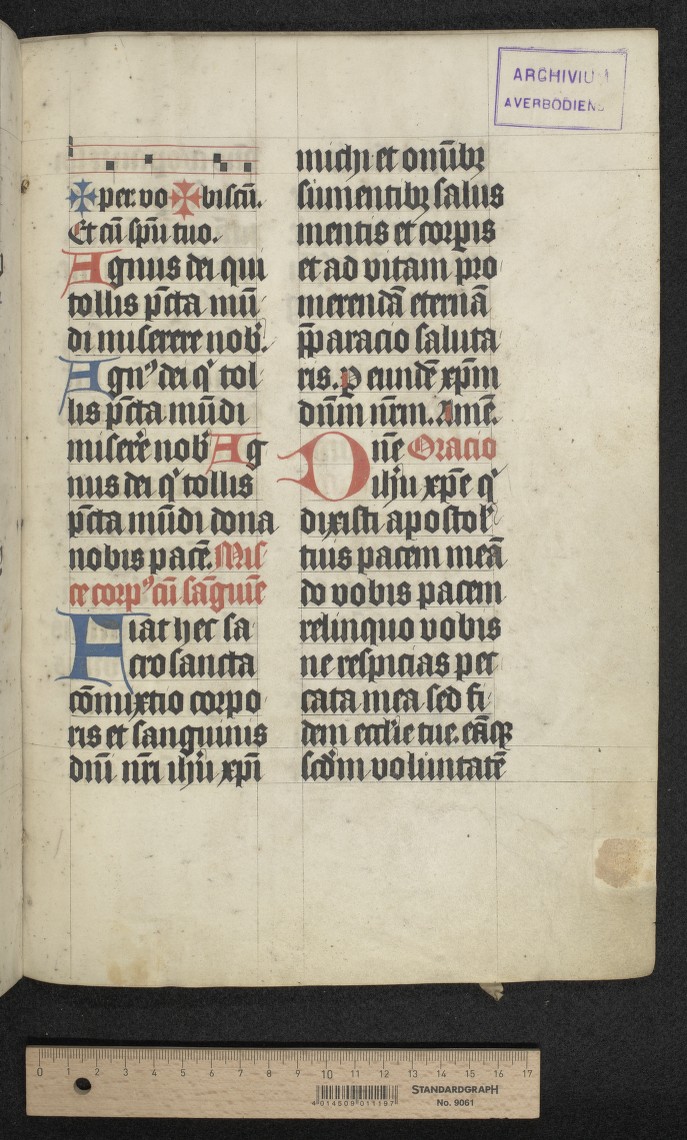 ARCHIVIUM
AVERBODIENS
✠ per. vo ✠ biscū.
Et cū spū tuo.
Agnus dei qui
tollis pc̄ta mū
di miserere nob̄.
Agnꝰ dei qͥ tol
lis pc̄ta mūdi
miserē nob̄ Ag
nus dei qͥ tollis
pc̄ta mūdi dona
nobis pacē. Mis
ce corpꝰ cū sāguīe
Fiat hec sa
cro sancta
cōmixtio corpo
ris et sanguinis
dn̄i nr̄i ihū xp̄i
michi et om̄ibꝫ
sumentibꝫ salus
mentis et corꝑis
et ad vitam pro
merendā eternā
p̄paracio saluta
ris. p eundē xp̄m
dn̄m nr̄m. Amē.
Dn̄e Oracio
ihū xp̄e qͥ
dixisti apostol̄
tuis pacem meā
do vobis pacem
relinquo vobis
ne respicias pec
cata mea sed fi
dem eccl̄ie tue. eāqꝫ
scd̄m voluntatē
0 1 2 3 4 5 6 7 8 9 10 11 12 13 14 15 16 17
STANDARDGRAPH
4 014509 011197
No. 9061